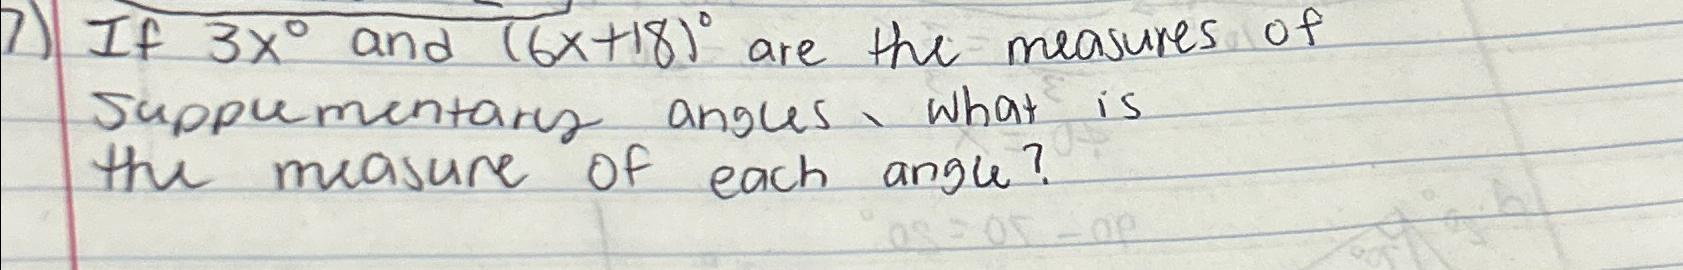 7) If 3x° and (6x+18)° are the measures of
supplementary angles, what is
the measure of each angle?
90-70=20°